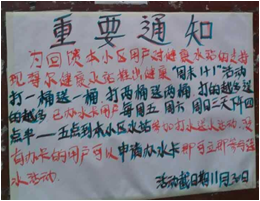 重要通知
为回馈本小区用户对健康水站的支持
现尊尔健康水站推出健康"周末1+1"活动
打一桶送一桶 打两桶送两桶 打的越多送
的越多 已办水卡用户每周五 周六 周日三天下午四
点半——五点到本小区水站参加打水送水活动。没
有办水卡的用户可以申请办水卡即可立即参与送
水活动。
活动截日期11月30日